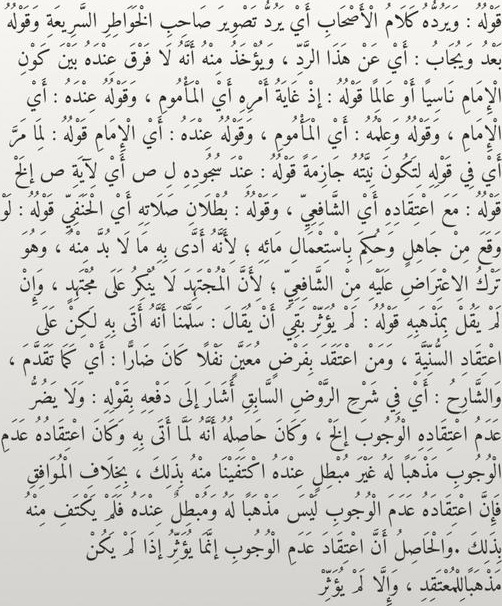 قَوْلُهُ : وَيَرُدُّه كَلَامُ الْأَصْحَابِ أَيْ يَرُدُّ تَصْوِيرَ صَاحِبِ الْخَوَاطِرِ السَّرِيعَةِ وَقَوْلُهُ
بَعْدُ وَيُجَابُ : أَيْ عَنْ هَذَا الرَّدِّ ، وَيُؤْخَذُ مِنْهُ أَنَّهُ لَا فَرْقَ عِنْدَهُ بَيْنَ كَوْنِ
الْإِمَامِ نَاسِيًا أَوْ عَالِمًا قَوْلُهُ : إذْ غَايَةُ أَمْرِهِ أَيْ الْمَأْمُومِ ، وَقَوْلُهُ عِنْدَهُ : أَيْ
الْإِمَامِ ، وَقَوْلُهُ وَعِلْمُهُ : أَيْ الْمَأْمُومِ ، وَقَوْلُهُ عِنْدَهُ : أَيْ الْإِمَامِ قَوْلُهُ : لِمَا مَرَّ
أَيْ فِي قَوْلِهِ لِتَكُونَ نِيَّتُهُ جَازِمَةً قَوْلُهُ : عِنْدَ سُجُودِهِ لِ ص أَيْ لِآيَةِ ص إلَخْ
قَوْلُهُ : مَعَ اعْتِقَادِهِ أَيْ الشَّافِعِيِّ ، وَقَوْلُهُ : بُطْلَان صَلَاتِهِ أَيْ الْحَنَفِيِّ قَوْلُهُ : لَوْ
وَقَعَ مِنْ جَاهِلٍ وَحُكِمَ بِاسْتِعْمَالِ مَائِهِ ؛ لِأَنَّهُ أَدَّى بِهِ مَا لَا بُدَّ مِنْهُ ، وَهُوَ
تَرْكُ الِاعْتِرَاضِ عَلَيْهِ مِنْ الشَّافِعِيِّ ؛ لِأَنَّ الْمُجْتَهِدَ لَا يُنْكِرُ عَلَى مُجْتَهِدٍ ، وَإِنْ
لَمْ يَقُلْ بِمَذْهَبِهِ قَوْلُهُ : لَمْ يُؤَثِّرْ بَقِيَ أَنْ يُقَالَ : سَلَّمْنَا أَنَّهُ أَتَى بِهِ لَكِنْ عَلَى
اعْتِقَادِ السُّنِّيَّةِ ، وَمَنْ اعْتَقَدَ بِفَرْضٍ مُعَيَّنٍ نَفْلًا كَانَ ضَارًّا : أَيْ كَمَا تَقَدَّمَ ،
وَالشَّارِحُ : أَيْ فِي شَرْحِ الرَّوْضِ السَّابِقِ أَشَارَ إلَى دَفْعِهِ بِقَوْلِهِ : وَلَا يَضُرُّ
عَدَمُ اعْتِقَادِهِ الْوُجُوبَ إلَخْ ، وَكَانَ حَاصِلُهُ أَنَّهُ لَمَّا أَتَى بِهِ وَكَانَ اعْتِقَادُهُ عَدَمِ
الْوُجُوبِ مَذْهَبًا لَهُ غَيْرَ مُبْطِلٍ عِنْدَهُ اكْتَفَيْنَا مِنْهُ بِذَلِكَ ، بِخِلَافِ الْمُوَافِقِ
فَإِنَّ اعْتِقَادَهُ عَدَمَ الْوُجُوبِ لَيْسَ مَذْهَبًا لَهُ وَمُبْطِلٌ عِنْدَهُ فَلَمْ يَكْتَفِ مِنْهُ
بِذَلِكَ .وَالْحَاصِلُ أَنَّ اعْتِقَادَ عَدَمِ الْوُجُوبِ إنَّمَا يُؤَثِّرُ إذَا لَمْ يَكُنْ
مَذْهَبًالِلْمُعْتَقِدِ ، وَإِلَّا لَمْ يُؤَثِّرْ